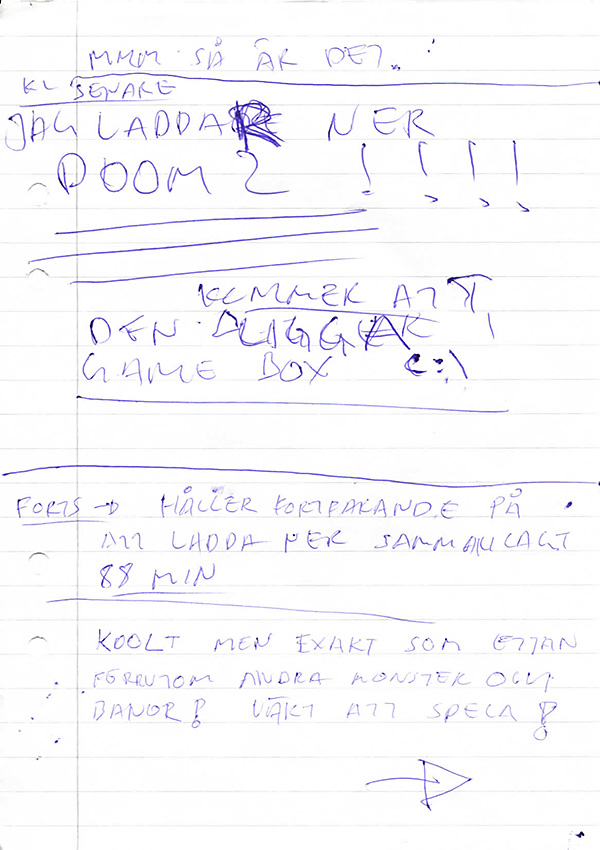 MMM SÅ ÄR DET..
KL SENARE
JAG LADDAR NER
DOOM 2 ! ! ! !
KOMMER ATT
DEN LIGGER
GAME BOX C:\
FORTS → HÅLLER FORTFARANDE PÅ
ATT LADDA NER SAMMANLAGT
88 MIN
KOOLT MEN EXAKT SOM ETTAN
FÖRRUTOM ANDRA MONSTER OCH
BANOR! VÄRT ATT SPELA!